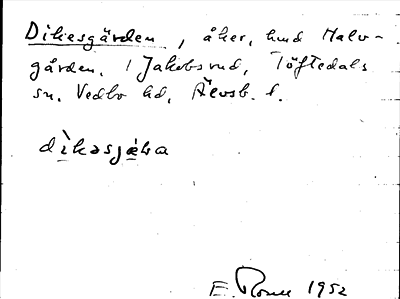 Dikesgärden, åker, hmd Halv-
gården, 1 Jakobsrud, Töftedals
sn, Vedbo hd, Älvsb. l.
dìkəsjæ̀ɽa
E. 1952